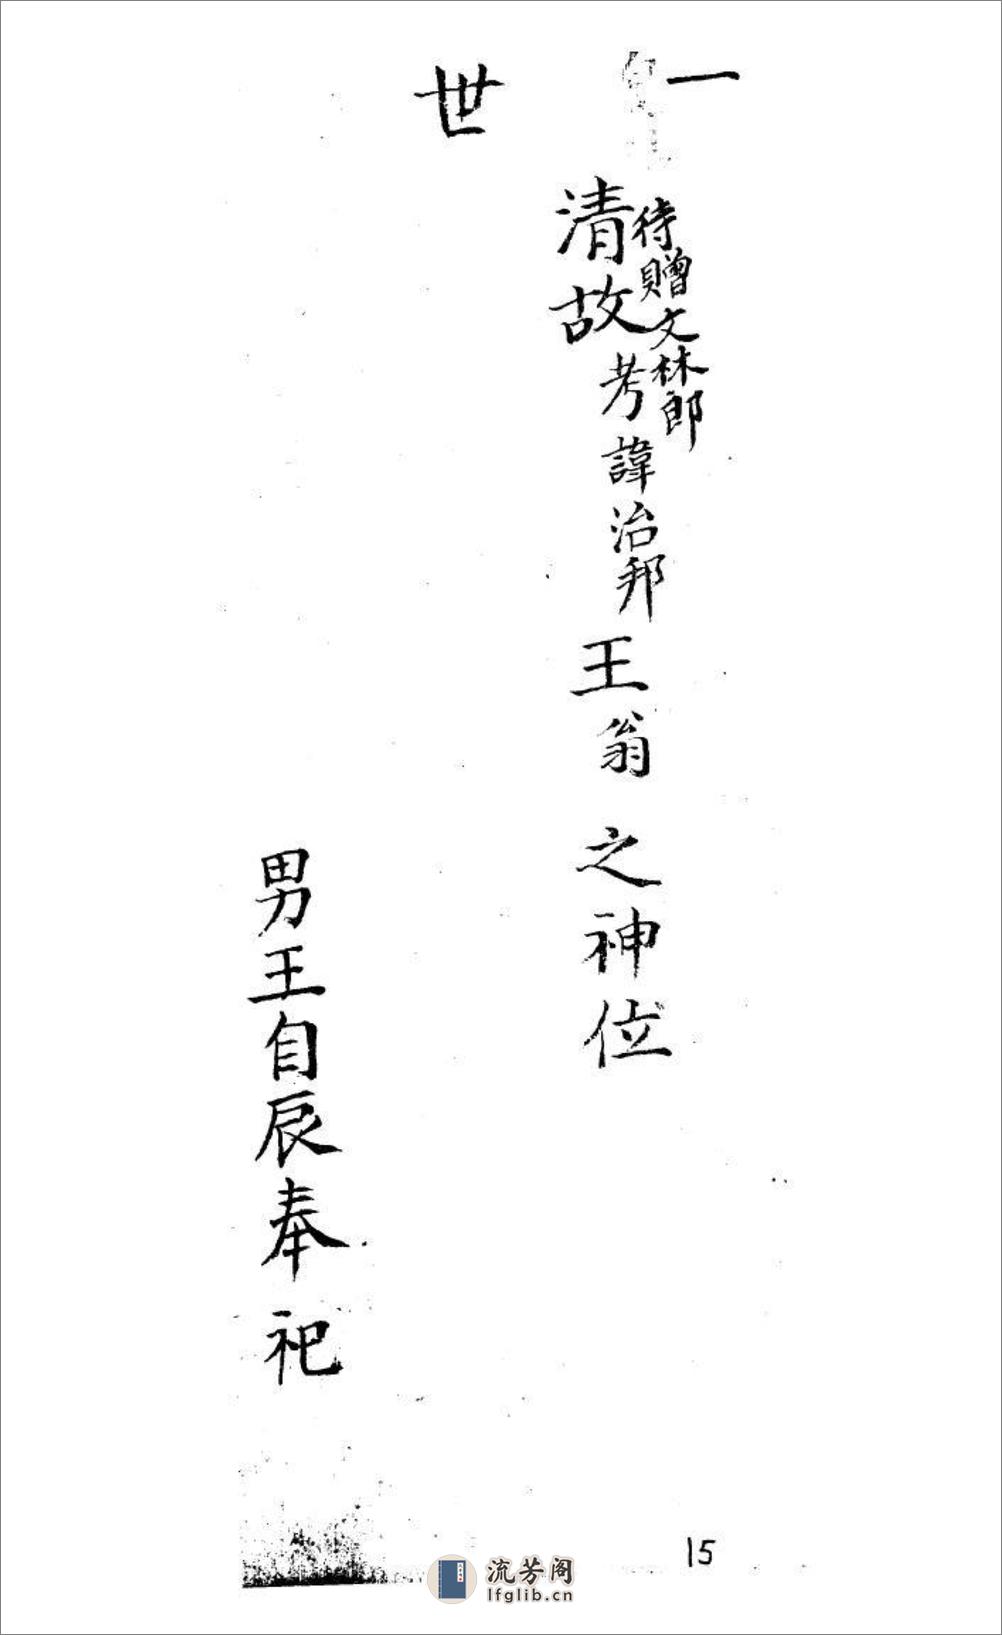 一世
待贈文林郎
清故考諱治邦王翁之神位
男王自辰奉祀
15
流芳阁
lfglib.cn